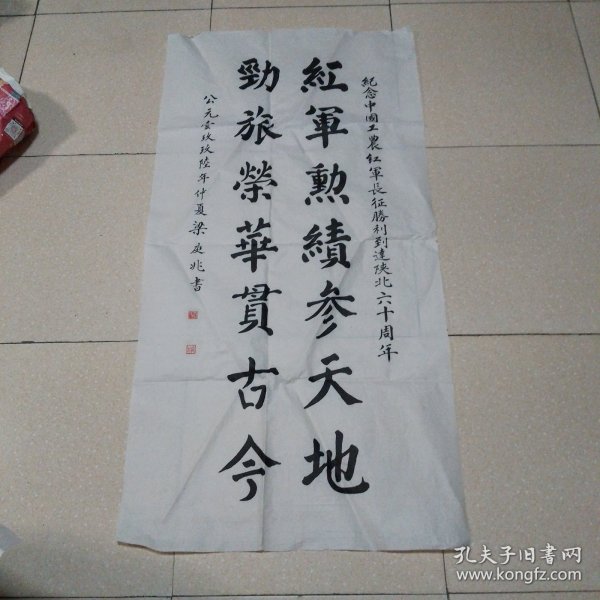 紀念中國工農紅軍長征勝利到達陝北六十周年
紅軍勲績參天地
勁旅榮華貫古今
公元壹玖玖陸年仲夏梁庚兆書
孔夫子旧书网
www.kongfz.com